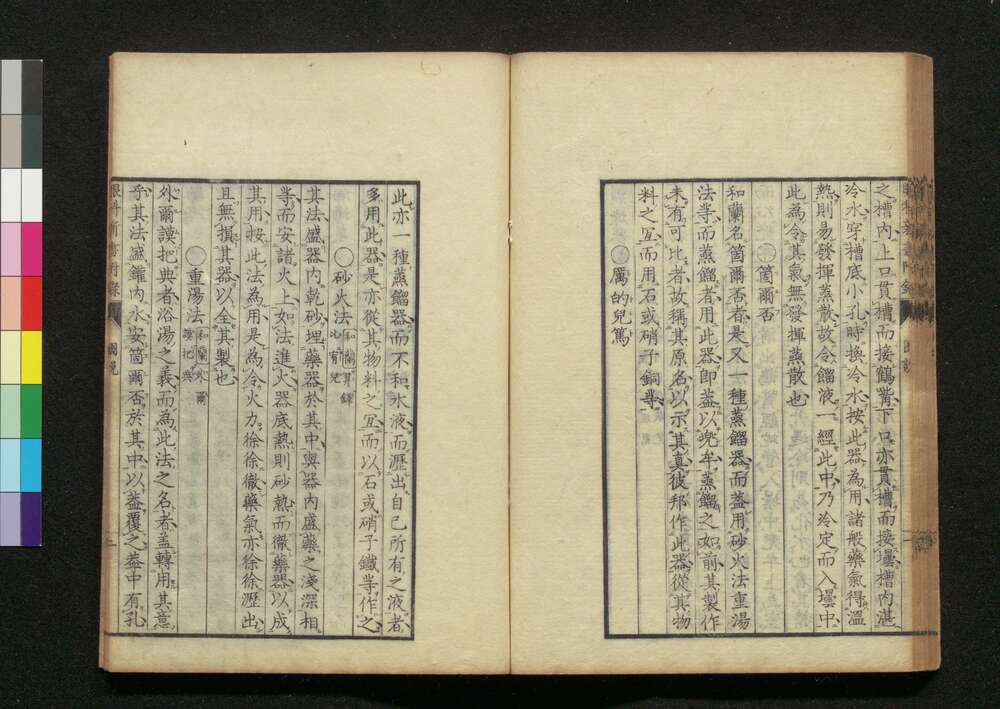 之槽内上口貫槽而接鶴嘴下口亦貫槽而接壜槽内湛
冷水穿槽底小孔時換冷水按此器為用諸般藥氣得溫
熱則易發揮蒸散故令餾液一經此中乃冷定而入壜中
此為令其氣無發揮蒸散也
○箇爾否
和蘭名箇爾否者是又一種蒸餾器而蓋用砂火法重湯
法等而蒸餾者用此器即蓋以兜牟蒸餾之如前其製作
未有可比者故稱其原名以示其真彼邦作此器從其物
料之宜而用石或硝子銅等
○厲的兒篤
此亦一種蒸餾器而不和水液而瀝出自己所有之液者
多用此器是亦從其物料之宜而以石或硝子鐵等作之
○砂火法
其法盛器内乾砂埋藥器於其中與器内盛藥之淺深相
等而安諸火上如法進火器底熱則砂熱而徹藥器以成
其用按此法為用是為令火力徐徐徹藥氣亦徐徐瀝出
且無損其器以全其製也
○重湯法 和蘭外爾謨把典
外爾謨把典者浴湯之義而為此法之名者蓋轉用其意
乎其法盛鑵内水安箇爾否於其中以蓋覆之蓋中有孔
眼科新書附錄
圖說
二